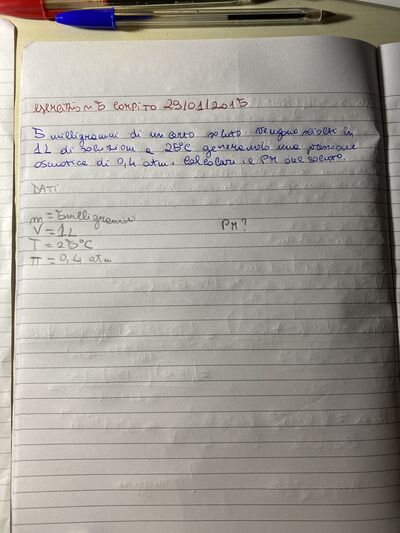 esercizio n°5 compito 29/01/2015
5 milligrammi di un certo soluto vengono sciolti in
1L di soluzione a 25°C generando una pressione
osmotica di 0,4 atm. Calcolare il PM del soluto.
DATI
m = 5milligrammi
V = 1L PM?
T = 25°C
π = 0,4 atm